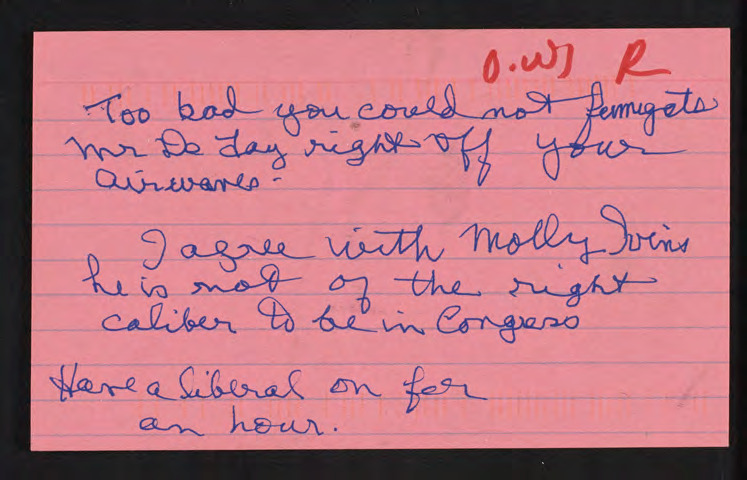 O.W) R
Too bad you could not fumigate
Mr De Lay right off your
airwaves -
I agree with Molly Ivins
he is not of the right
caliber to be in Congress
Have a liberal on for
an hour.